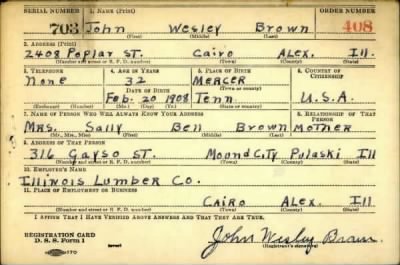 SERIAL NUMBER 1. NAME (Print) ORDER NUMBER
703 John Wesley Brown 408
(First) (Middle) (Last)
2. ADDRESS (Print)
2408 Poplar ST. Cairo Alex. Ill.
(Number and street or R. F. D. number) (Town) (County) (State)
3. TELEPHONE 4. AGE IN YEARS 5. PLACE OF BIRTH 6. COUNTRY OF CITIZENSHIP
None 32 MERCER
DATE OF BIRTH (Town or county)
Feb. 20 1908 Tenn. U.S.A.
(Exchange) (Number) (Mo.) (Day) (Yr.) (State or country)
7. NAME OF PERSON WHO WILL ALWAYS KNOW YOUR ADDRESS 8. RELATIONSHIP OF THAT PERSON
Mrs. Sally Bell Brown Mother
(Mr., Mrs., Miss) (First) (Middle) (Last)
9. ADDRESS OF THAT PERSON
316 St. Mound City Pulaski Ill
(Number and street or R. F. D. number) (Town) (County) (State)
10. EMPLOYER'S NAME
Illinois Lumber Co.
11. PLACE OF EMPLOYMENT OR BUSINESS
Cairo Alex. Ill
(Number and street or R. F. D. number) (Town) (County) (State)
I AFFIRM THAT I HAVE VERIFIED ABOVE ANSWERS AND THAT THEY ARE TRUE.
REGISTRATION CARD
D. S. S. Form 1 John Wesley Brown
(Registrant's signature)